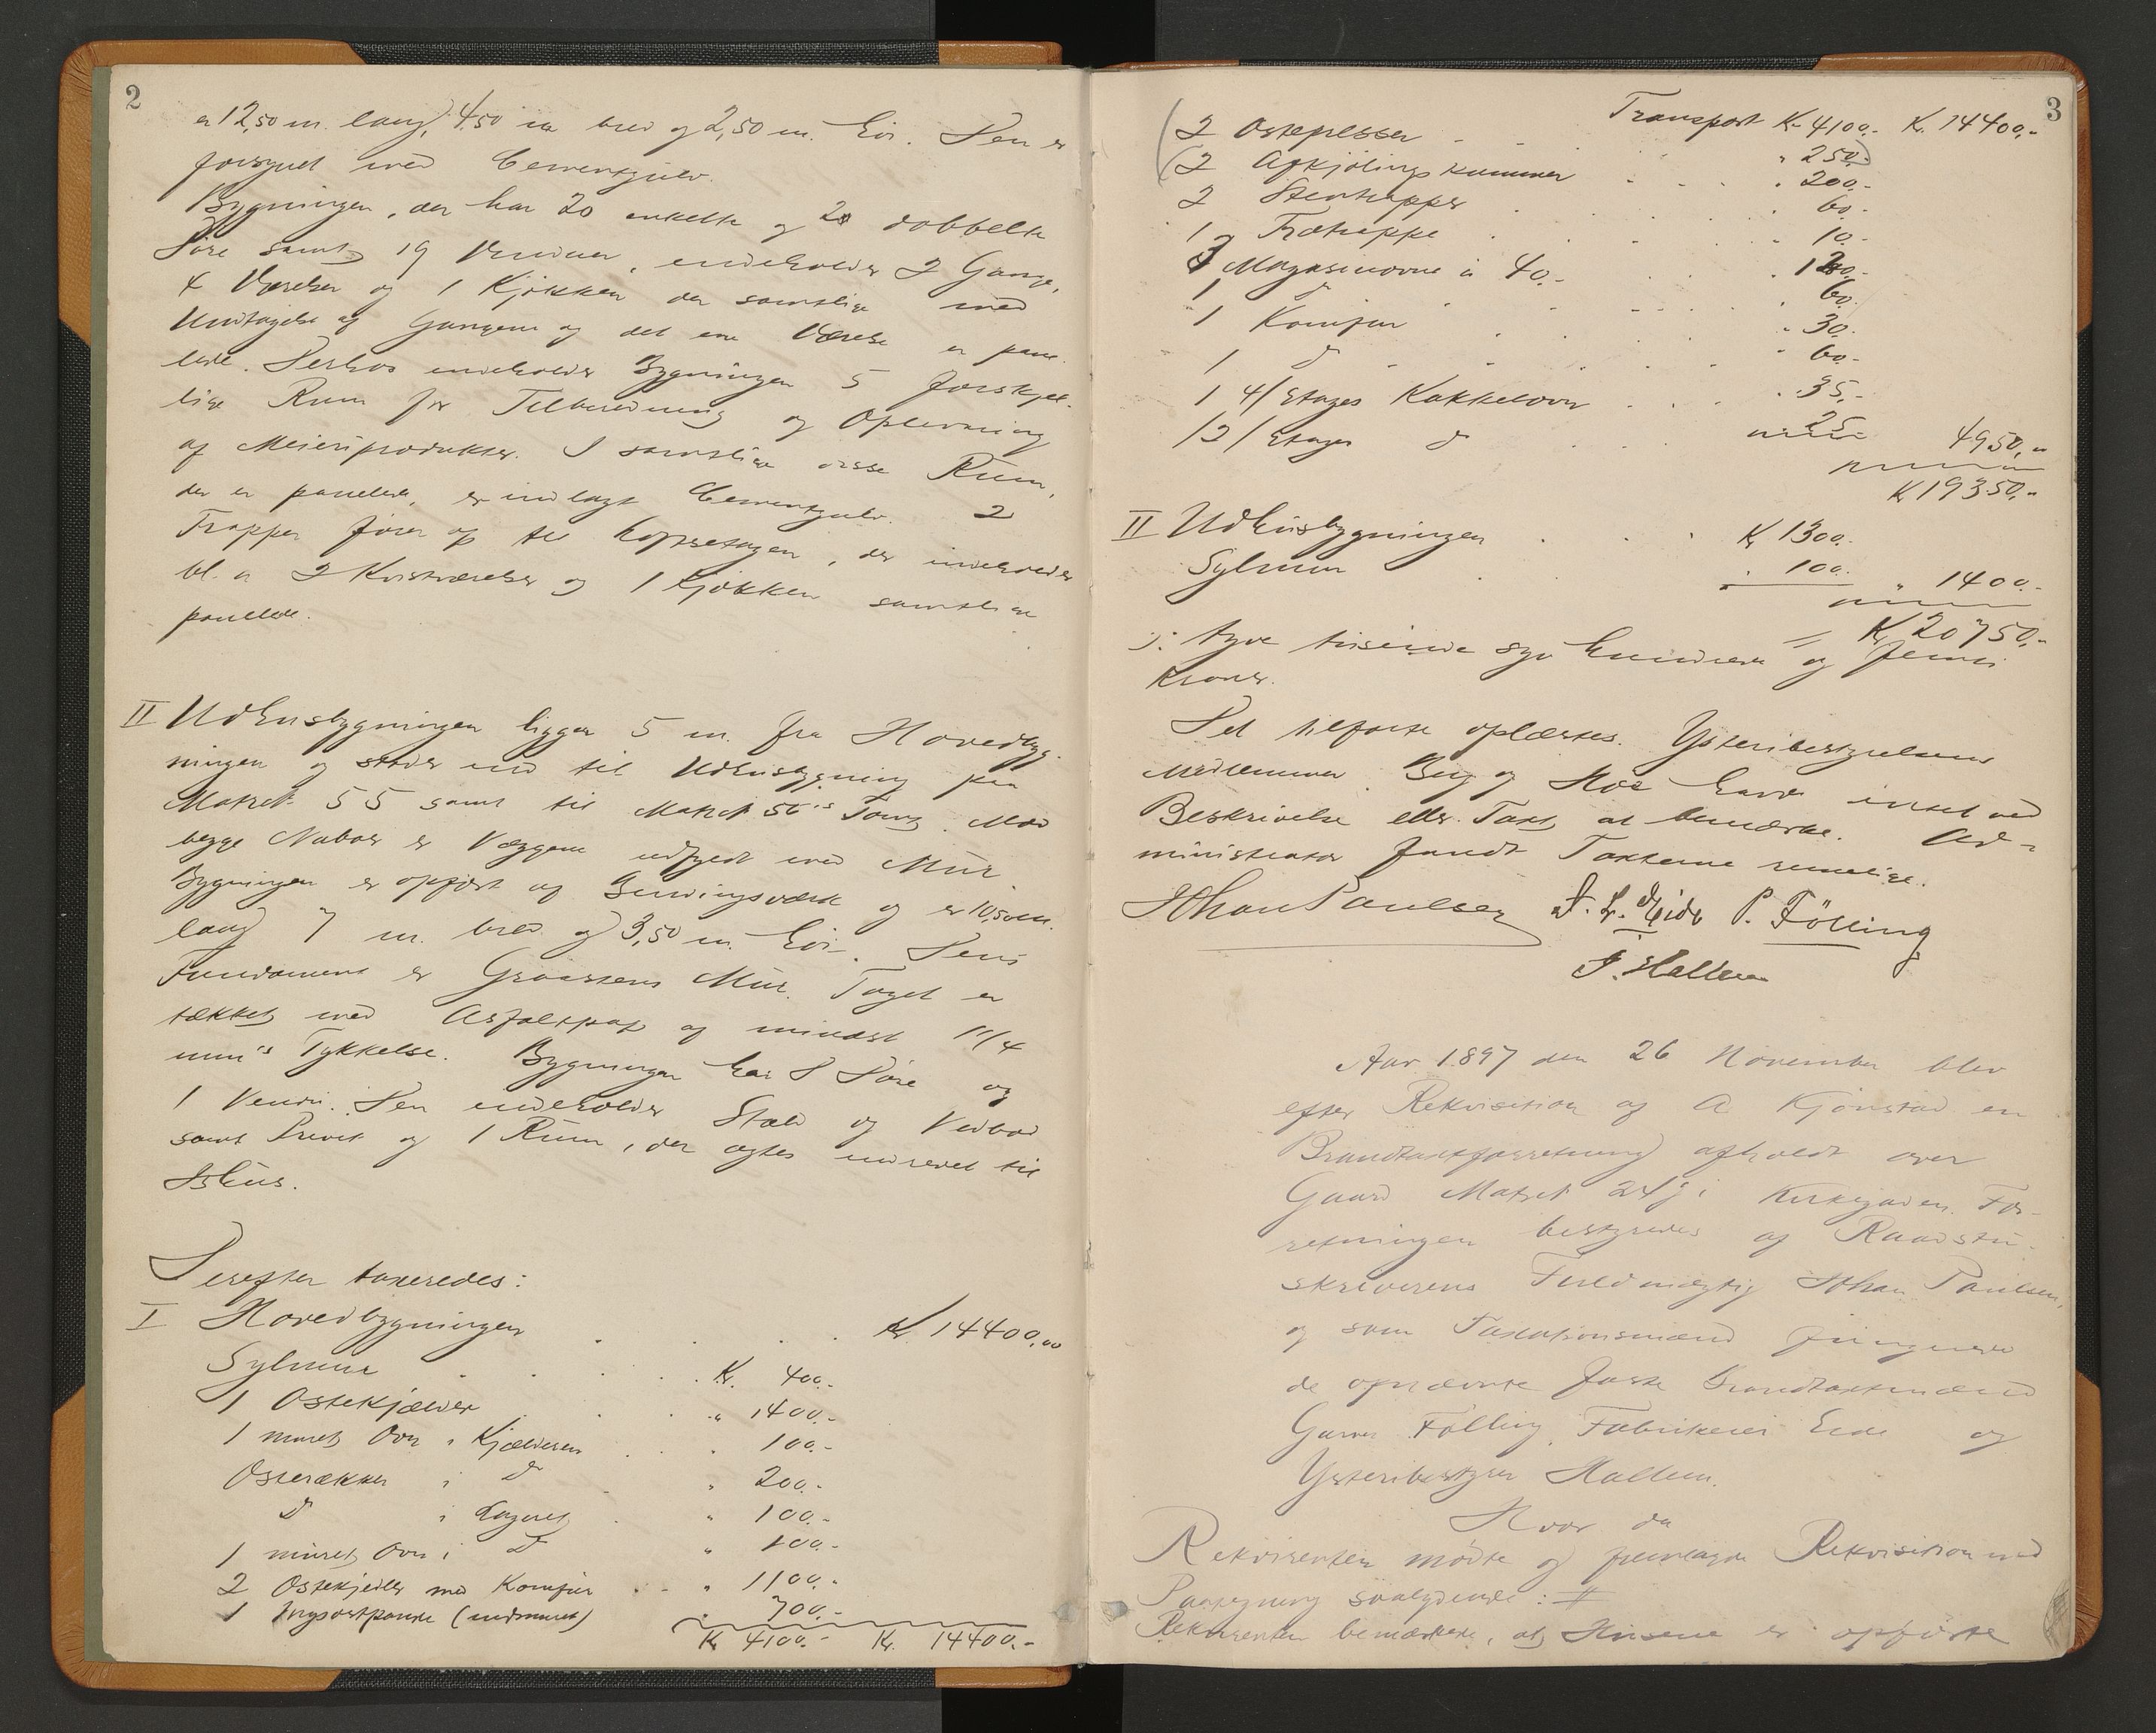 2
er 12,50 m. lang, 4,50 m bred og 2,50 m. høi. Den er
forsynet med Cementgulv.
Bygningen, der har 20 enkelte og 20 dobbelte
Døre samt 19 Vinduer, indeholder 2 Gange,
4 Værelser og 1 Kjøkken der samtlige med
Undtagelse af Gangene og det ene Værelse er pane-
lede. Desuden indeholder Bygningen 5 forskjel-
lige Rum for Tilberedning og Oplevning
af Meieriprodukter. I samtlige disse Rum,
der er panelede, er indlagt Cementgulv. 2
Trapper fører op til Loftsetagen, der indeholder
bl. a. 2 Kvistværelser og 1 Kjøkken samtlige
panelede.
II Udhusbygningen ligger 5 m. fra Hovedbyg-
ningen og støder ind til Udhusbygning paa
Matr. 55 samt til Matr. 56's Tomt. Mod
begge Naboer er Væggene udfyldt med Mur.
Bygningen er opført af Bindingsværk og er 10,50 m.
lang 7 m. bred og 3,50 m. høi. Dens
Fundament er Graastens Mur. Taget er
tækket med Asfaltpap af mindst 1 1/4
mm's Tykkelse. Bygningen har 8 Døre og
1 Vindu. Den indeholder Stald og Vedbod
samt Privet og 1 Rum, der agtes indredet til
Ishus.
Derefter taxeredes:
I Hovedbygningen . . . . Kr. 14400,00
Sylmur . . . . Kr. 400.-
1 Ostekjælder . . . " 1400.-
1 muret Ovn i Kjælderen . . " 100.-
Osterækker i Do . " 200.-
Do i Lageret . " 100.-
1 muret Ovn i Do " 100.-
2 Ostekjedler med Komfur . . " 1100.-
1 Mysostpande (indmuret) " 700.-
Kr 4100.- Kr. 14400.-
3
Transport Kr 4100.- Kr. 14400.-
2 Ostepresser . . . . " 250.-
2 Afkjølingskummer . . . " 200.-
2 Stentrapper . . . . " 60.-
1 Trætrappe . . . . " 10.-
3 Magasinovne a 40.- . . " 120.-
1 Do . . . . " 60.
1 Komfur . . . . " 30.
1 Do . . . . " 60.-
1 4/Etages Kakkelovn . . . " 35.-
1 2/Etages Do . . . 25.- 4950,-
Kr 19350.-
II Udhusbygningen . . . Kr 1300.-
Sylmur . . " 100.- " 1400.-
Kr 20750.-
ɔ: tyve tusinde syv hundrede og femti
Kroner.
Det tilførte oplæstes. Ysteribestyrelsens
Medlemmer Bug og Hoe havde intet ved
Beskrivelse eller Taxt at bemærke. Ad-
ministrator fandt Taxterne rimelige.
Johan Paulsen J. L. Eide P. Følling
J. Hallem
Aar 1897 den 26 November blev
efter Rekvisition af A Kjønstad en
Brandtaxtforretning afholdt over
Gaard Matr. 24j i Kirkegaden. For-
retningen bestyredes af Raadstu-
skriverens Fuldmægtig Johan Paulsen,
og som Taxationsmænd fungerede
de opnævnte faste Brandtaxtmænd
Garver Følling, Fabrikeier Eide og
Ysteribestyrer Hallem.
Hvor da
Rekvirenten mødte og fremlagde Rekvisition med
Paategning saalydende: #
Rekvirenten bemærkede, at Husene er opførte